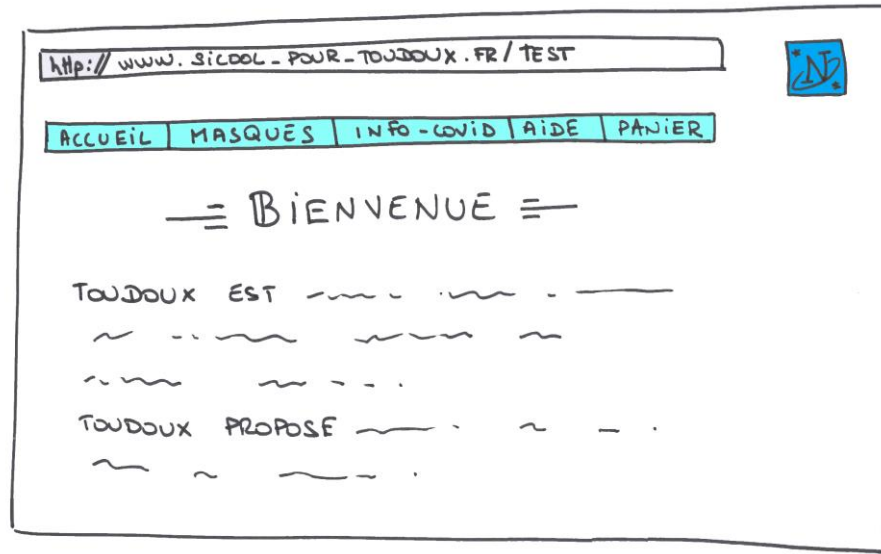 http://www.sicool-pour-toudoux.fr/TEST
N
ACCUEIL MASQUES INFO-COVID AIDE PANIER
BIENVENUE
TOUDOUX EST
TOUDOUX PROPOSE